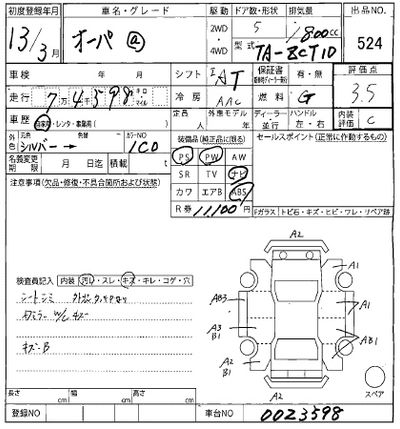 初度登録年月 車名・グレード 駆動 ドア数・形状 排気量 出品NO
13/3月 オーパ ⓐ 2WD 4WD 5 1800cc 524
型式 TA-ZCT10
車検 年 月 シフト IAT 保証書 有・無 評価点
走行 7万4598 冷房 AAC 燃料 G 3.5
車歴 自家用・レンタ・事業用( ) 定員 人 外連モデル 年 ディーラー 並行 ハンドル 左・右 内装評価 C
外色 シルバー → 色替 カラーNO 1C0 装備品(純正品に限る) セールスポイント(正常に作動するもの)
名義変更期限 月 日迄 積載 t PS PW AW
注意事項(欠品・修復・不具合箇所および状態) SR TV ナビ
カワ エアB ABS
R券 11100円 Fガラス トビ石・キズ・ヒビ・ワレ・リペア跡
A2
検査員記入 内装 汚レ・スレ・キズ・キレ・コゲ・穴 A1
シートシミ AB3 A1
Wキズ A3 B1 AB1
キズB A2 B1
A2
長さ cm 幅 cm 高さ cm スペア
登録NO 車台NO 0023598